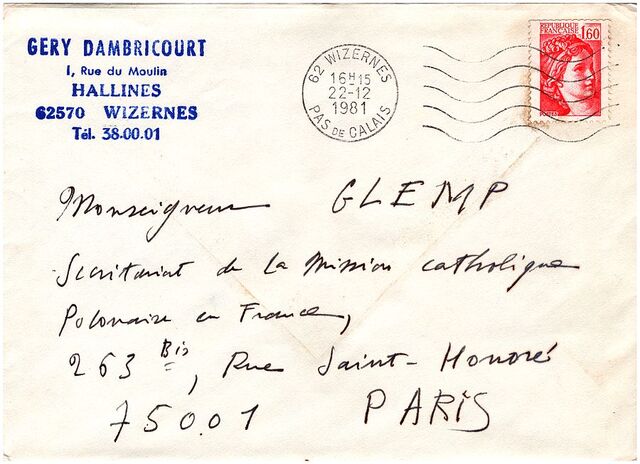 GERY DAMBRICOURT
1, Rue du Moulin
HALLINES
62570 WIZERNES
Tél. 38.00.01
62 WIZERNES
16H15
22-12
1981
PAS DE CALAIS
REPUBLIQUE
FRANÇAISE
1,60
POSTES
Monseigneur GLEMP
Secrétariat de La Mission catholique
Polonaise en France,
263 Bis, Rue Saint-Honoré
75001 PARIS